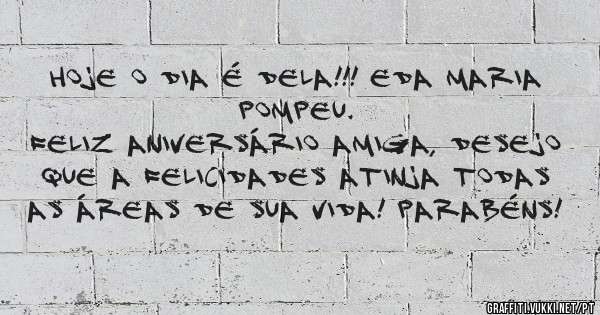 HOJE O DIA É DELA!!! EDA MARIA
POMPEU.
FELIZ ANIVERSÁRIO AMIGA, DESEJO
QUE A FELICIDADES ATINJA TODAS
AS ÁREAS DE SUA VIDA! PARABÉNS!
GRAFFITI.VUKKI.NET/PT